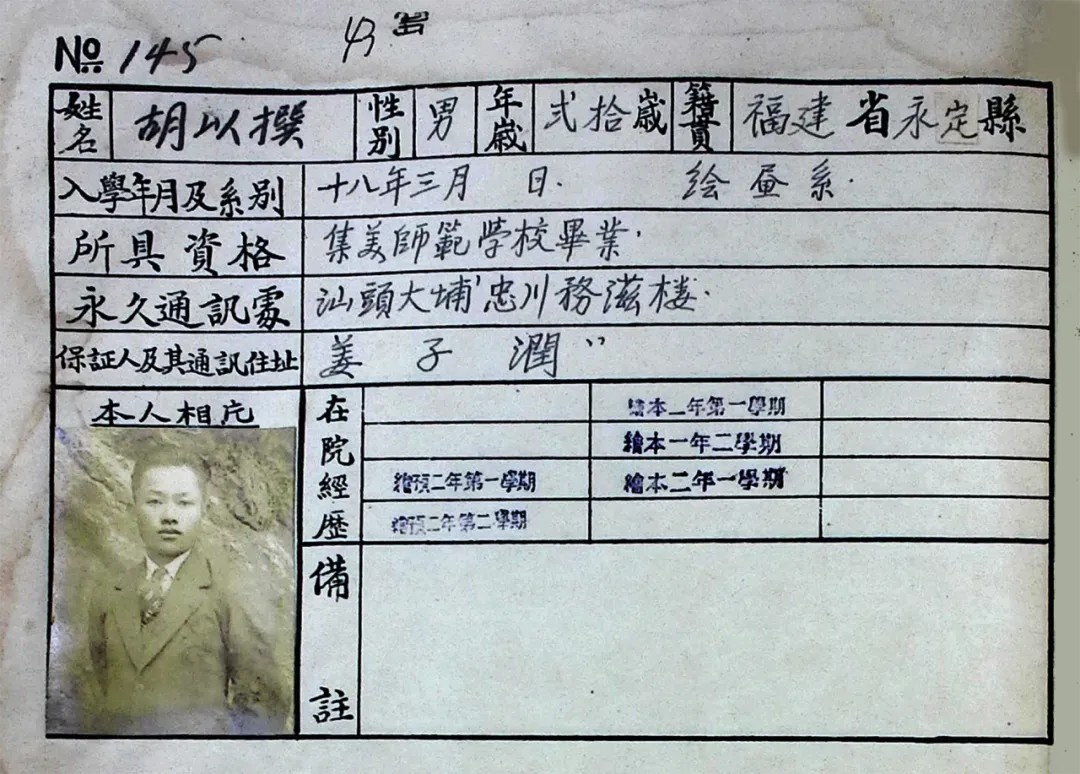 №145
姓名 胡以撰 性別 男 年歲 弍拾歲 籍貫 福建省永定縣
入學年月及系別 十八年三月 日. 绘画系.
所具資格 集美師範学校畢業.
永久通訊處 汕頭大埔忠川務滋楼.
保証人及其通訊住址 姜子潤〃
本人相片
在院經歷
繪本一年第一學期
繪本一年二學期
繪預二年第一學期 繪本二年一學期
繪預二年第二學期
備註